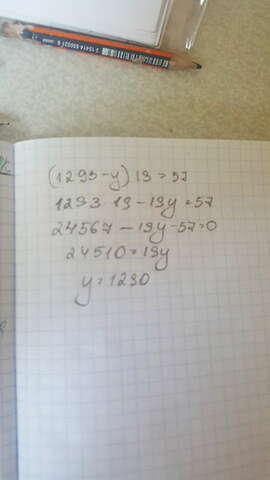 (1293-y) 19 = 57
1293 19 - 19y = 57
24567 - 19y - 57=0
24510 = 19y
y = 1290